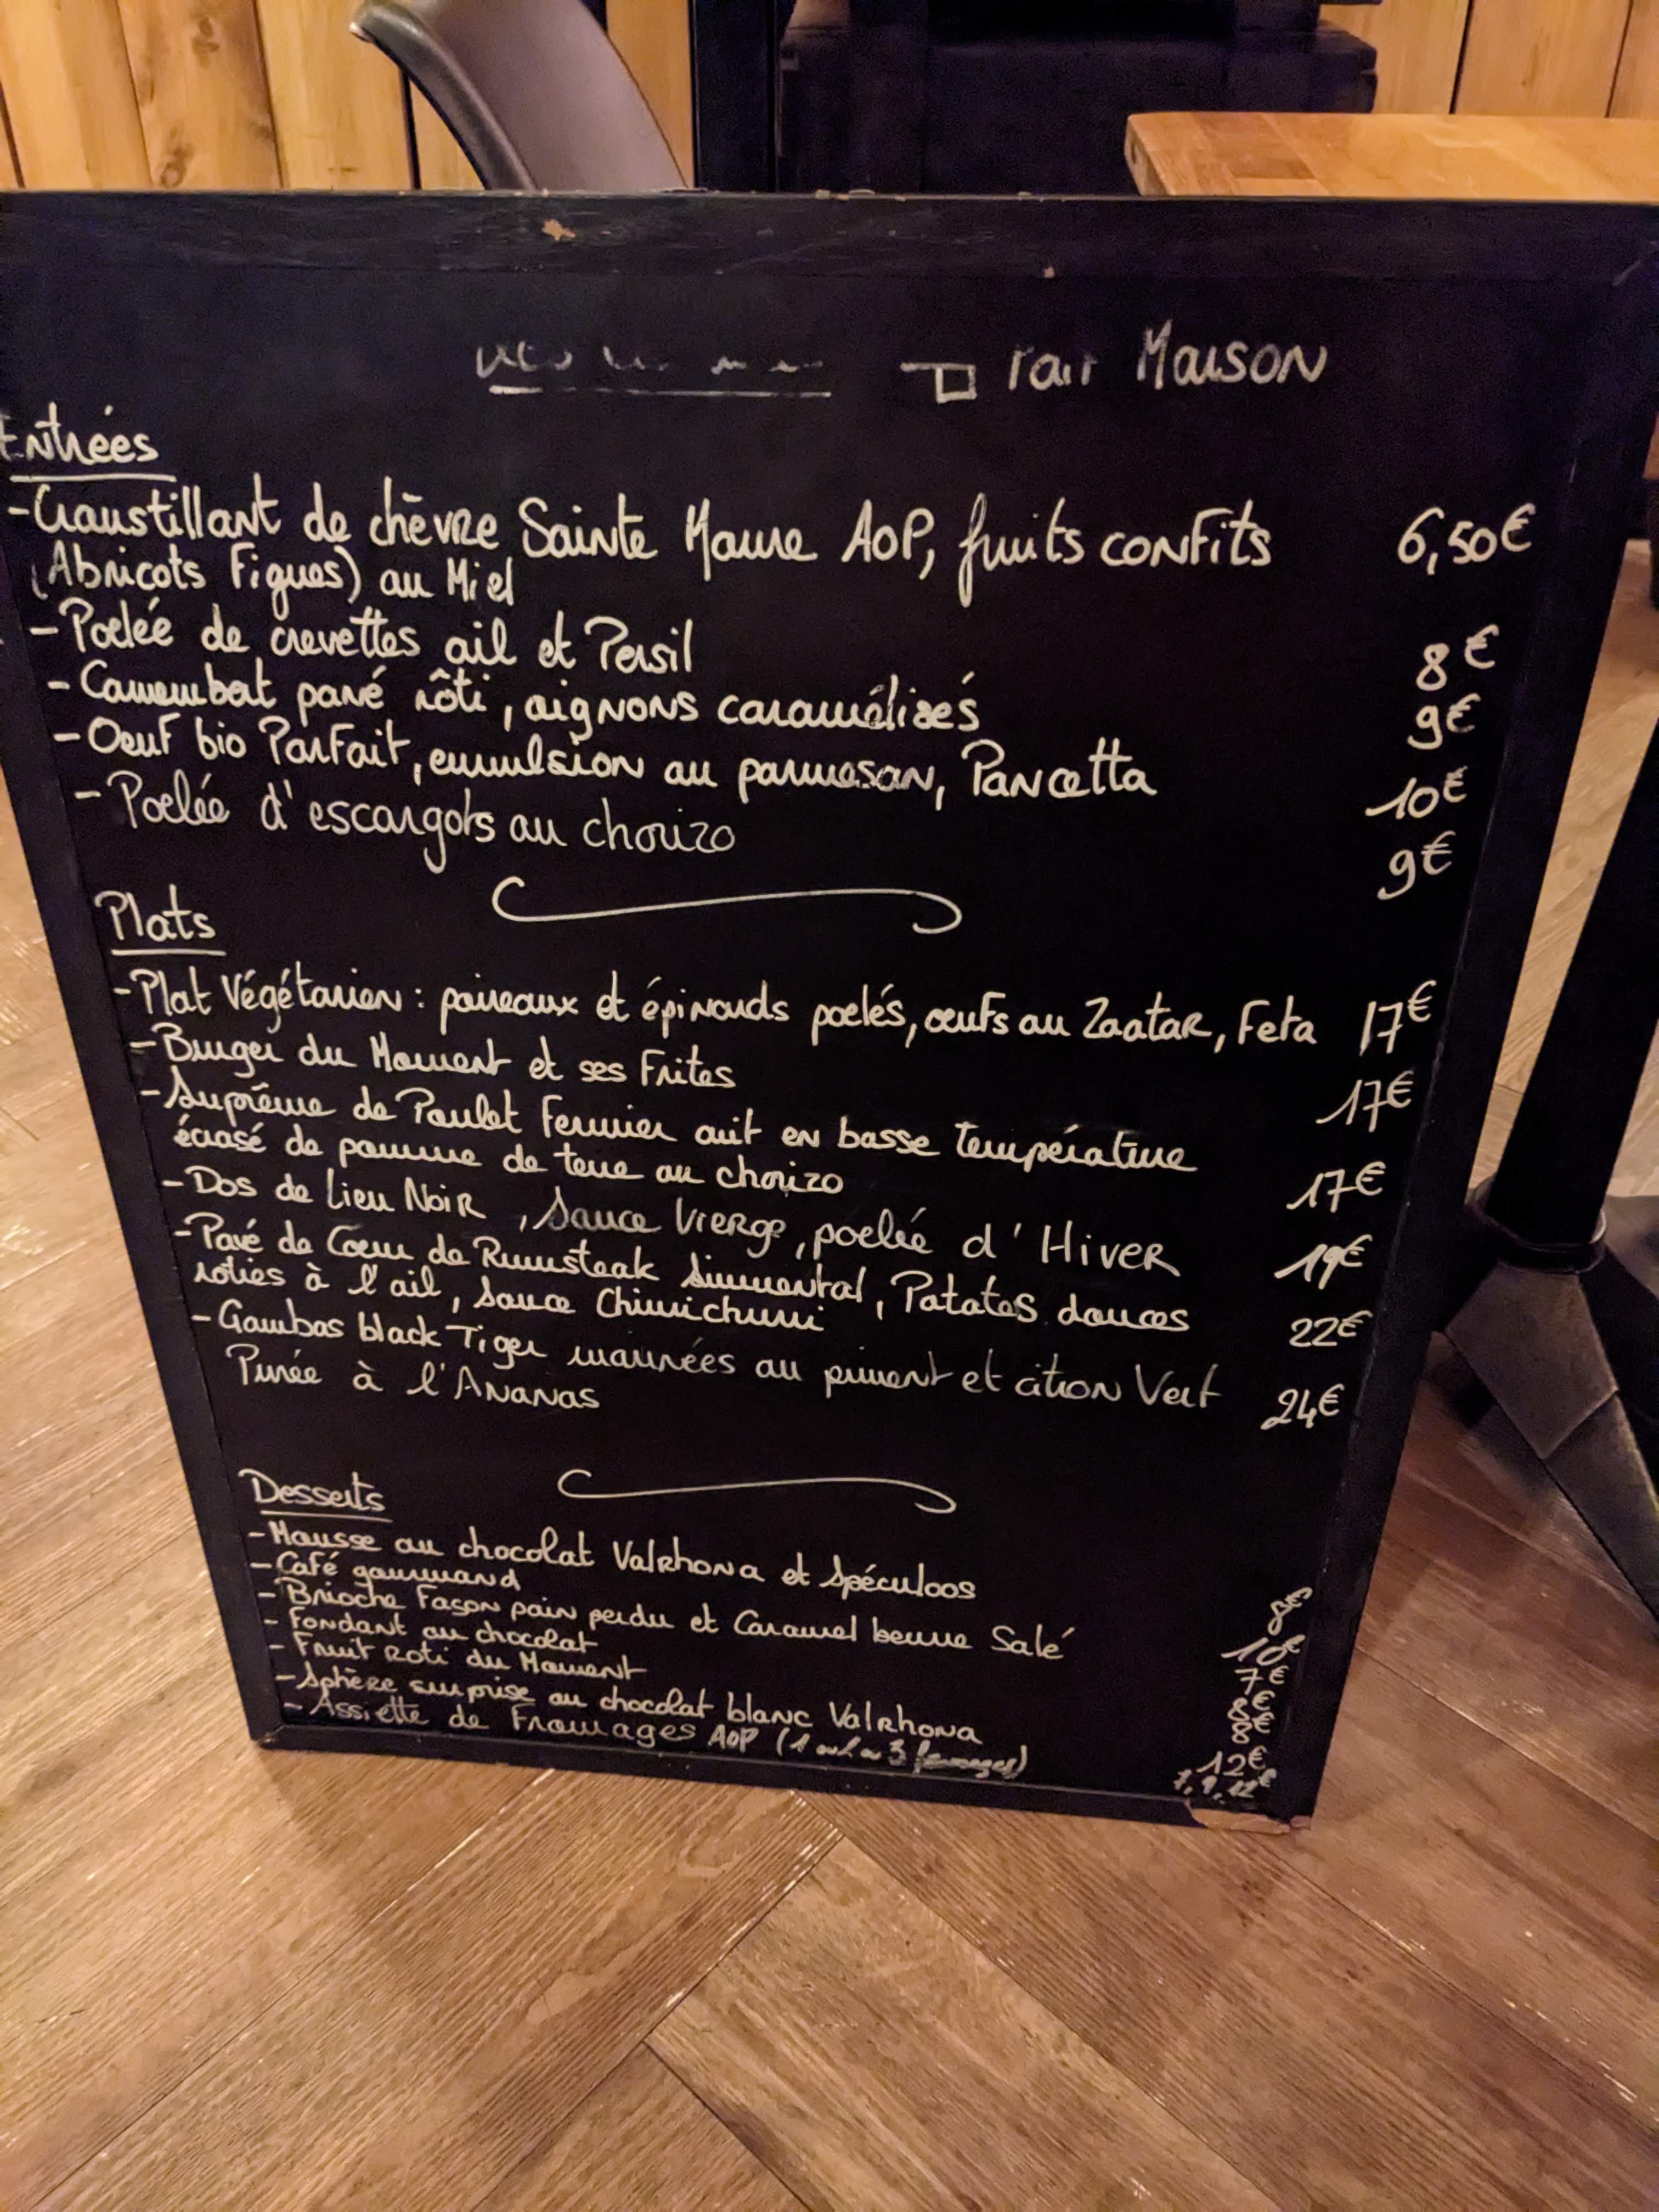 Fait Maison
Entrées
-Croustillant de chèvre Sainte Maure AOP, fruits confits 6,50€
(Abricots Figues) au Miel
-Poelée de crevettes ail et Persil 8€
-Camembert pané rôti, oignons caramélisés 9€
-Oeuf bio Parfait, emulsion au parmesan, Pancetta 10€
-Poelée d'escargots au chorizo 9€
Plats
-Plat Végétarien : poireaux et épinards poelés, oeufs au Zaatar, Feta 17€
-Burger du Moment et ses Frites 17€
-Suprême de Poulet Fermier cuit en basse température
écrasé de pomme de terre au chorizo 17€
-Dos de Lieu Noir, Sauce Vierge, poelée d'Hiver 19€
-Pavé de Coeur de Rumsteak Simmental, Patates douces
roties à l'ail, Sauce Chimichurri 22€
-Gambas black Tiger marinées au piment et citron Vert 24€
Purée à l'Ananas
Desserts
-Mousse au chocolat Valrhona et Spéculoos 8€
-Café gourmand 10€
-Brioche Façon pain perdu et Caramel beurre Salé 7€
-Fondant au chocolat 8€
-Fruit Roti du Moment 8€
-Sphère surprise au chocolat blanc Valrhona 12€
-Assiette de Fromages AOP (1 ou 2 ou 3 fromages) 7, 9, 12€